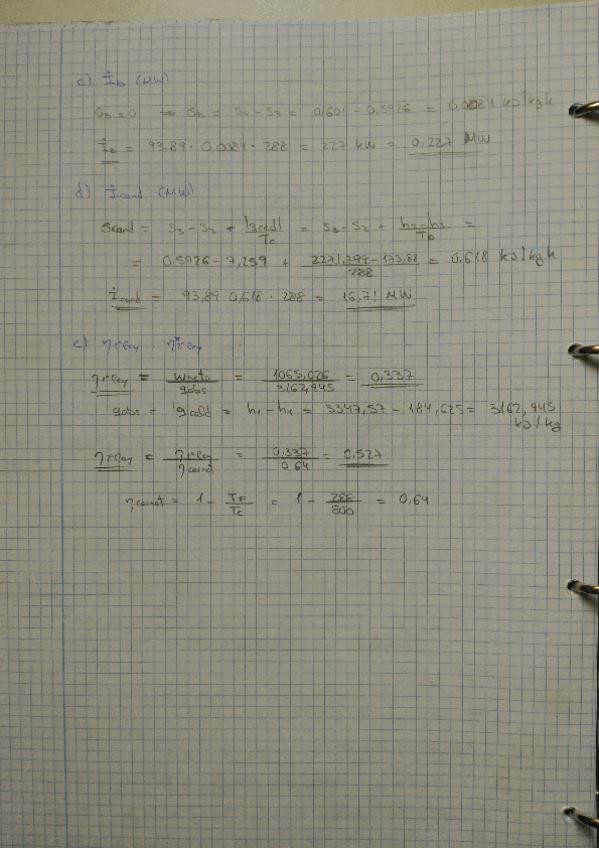 c) İb (MW)
σB=0 ⇒ σB = s4-s3 = 0,601 - 0,5926 = 0,0084 kJ/kgk
İb = 93,89 · 0,0084 · 288 = 227 kW = 0,227 MW
d) İcond (MW)
σcond = s3-s2 + |qced|/Tc = s3-s2 + h2-h3/To =
= 0,5926 - 7,259 + 2271,794-173,88/288 = 0,618 kJ/kgk
İcond = 93,89 0,618 · 288 = 16,71 MW
e) ηrcay η*rcay
ηrcay = wneto/qabs = 1065,026/3162,945 = 0,337
qabs = qcald = h1-h4 = 3347,57 - 184,625 = 3162,945
kJ/kg
ηrcay = ηrcay/ηcarnot = 0,337/0.64 = 0,527
ηcarnot = 1 - TF/Tc = 1 - 288/800 = 0,64